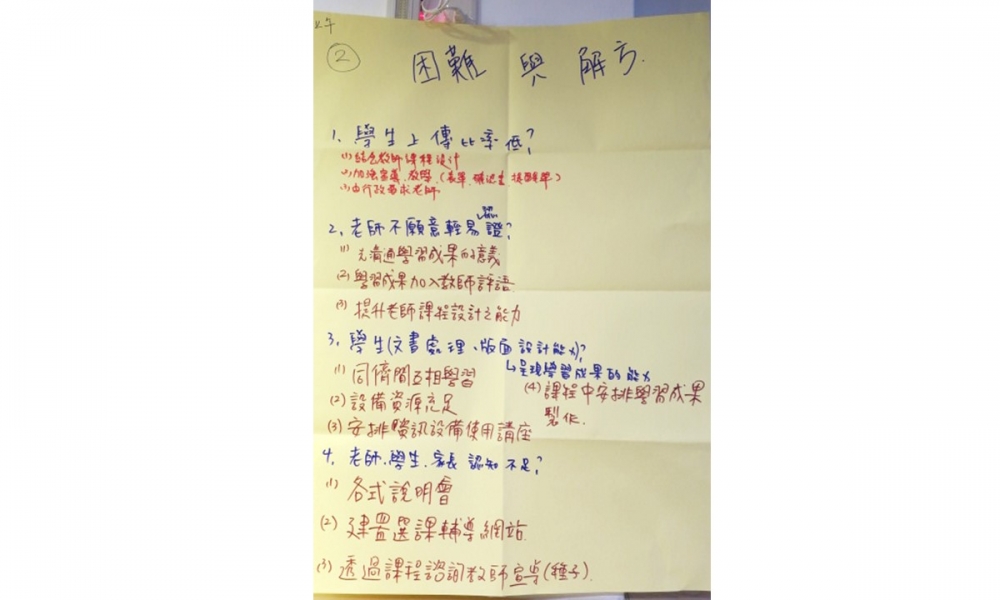 上午
② 困難與解方.
1. 學生上傳比率低?
(1) 結合教師課程設計
(2) 加強宣導、教學、(表單、確認書、提醒單)
(3) 由行政要求老師
2. 老師不願意輕易認證?
(1) 先溝通學習成果的意義
(2) 學習成果加入教師評語
(3) 提升老師課程設計之能力
3. 學生(文書處理、版面設計能力)?
↳呈現學習成果的能力
(1) 同儕間互相學習
(2) 設備資源充足
(3) 安排資訊設備使用講座
(4) 課程中安排學習成果
製作.
4. 老師、學生、家長 認知不足?
(1) 各式說明會
(2) 建置選課輔導網站.
(3) 透過課程諮詢教師宣導(種子).